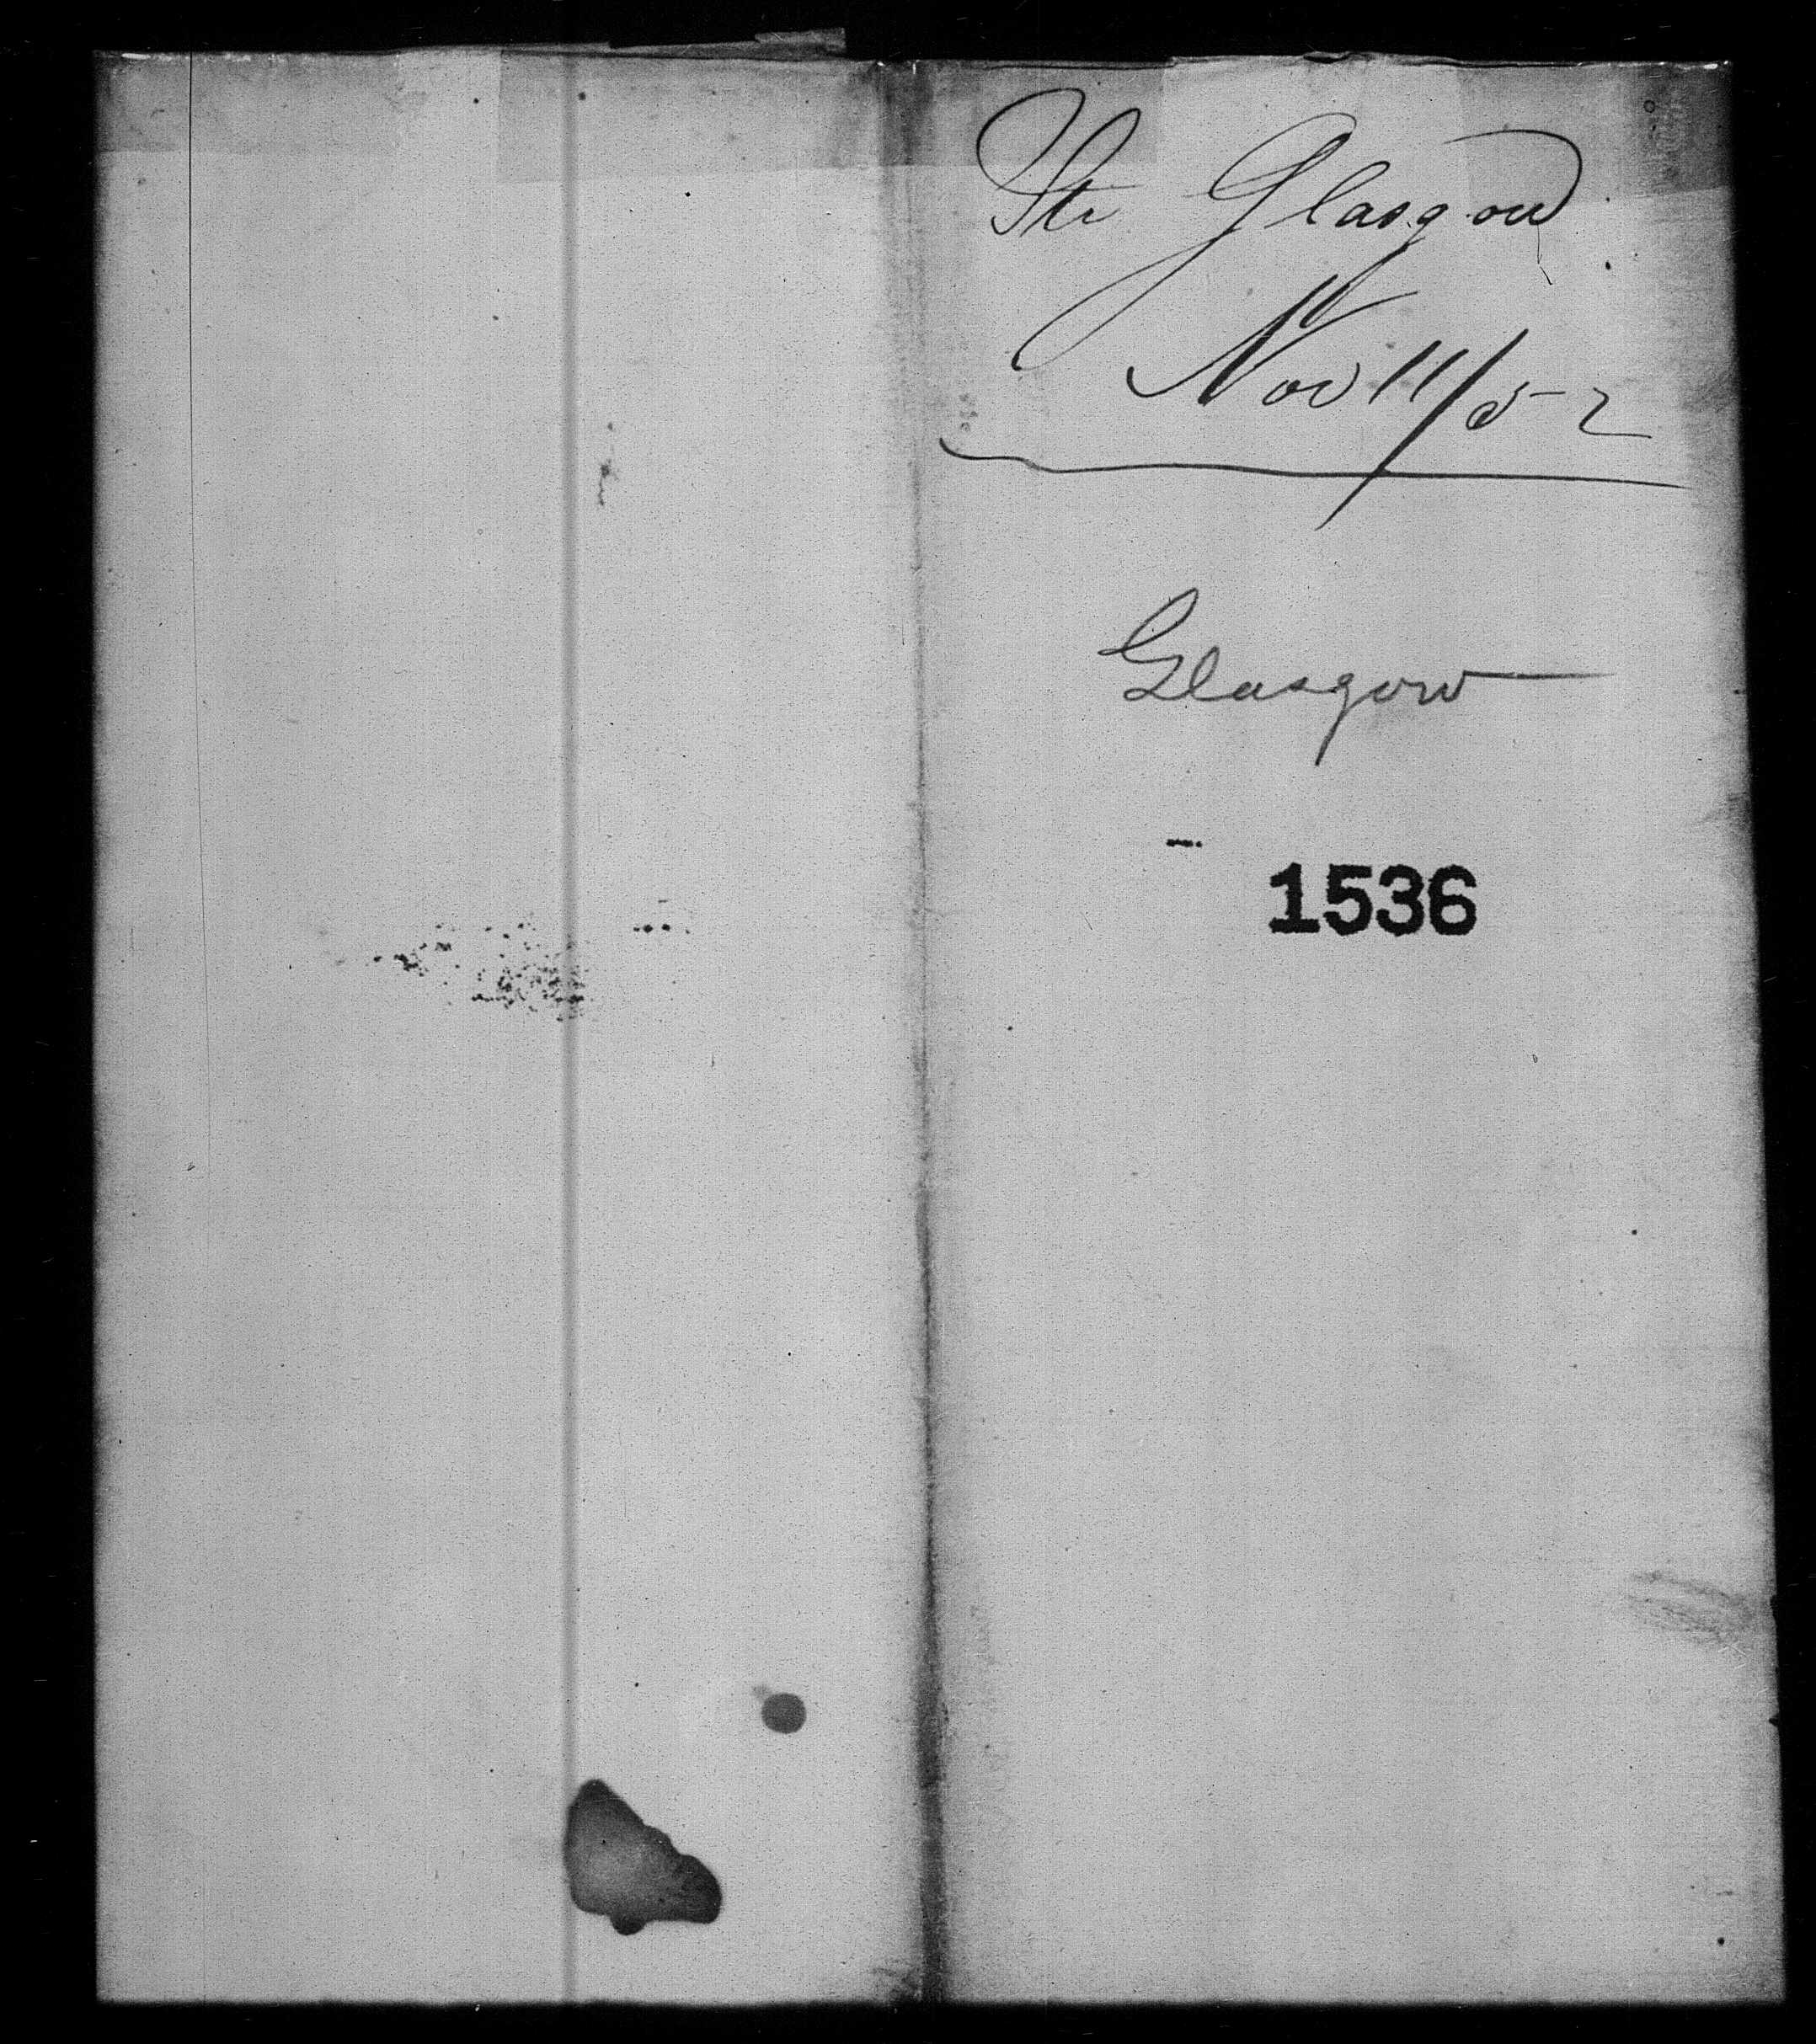 Str Glasgow
Nov 11/52
Glasgow
1536